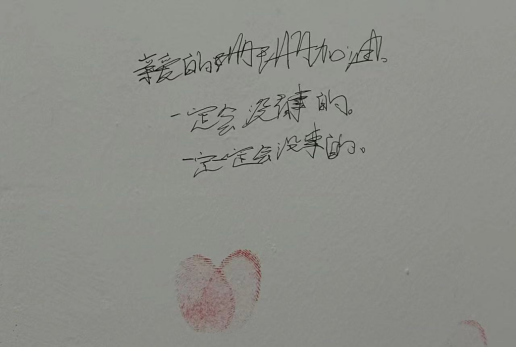 亲爱的姗姗加油。
一定会没事的。
一定一定会没事的。